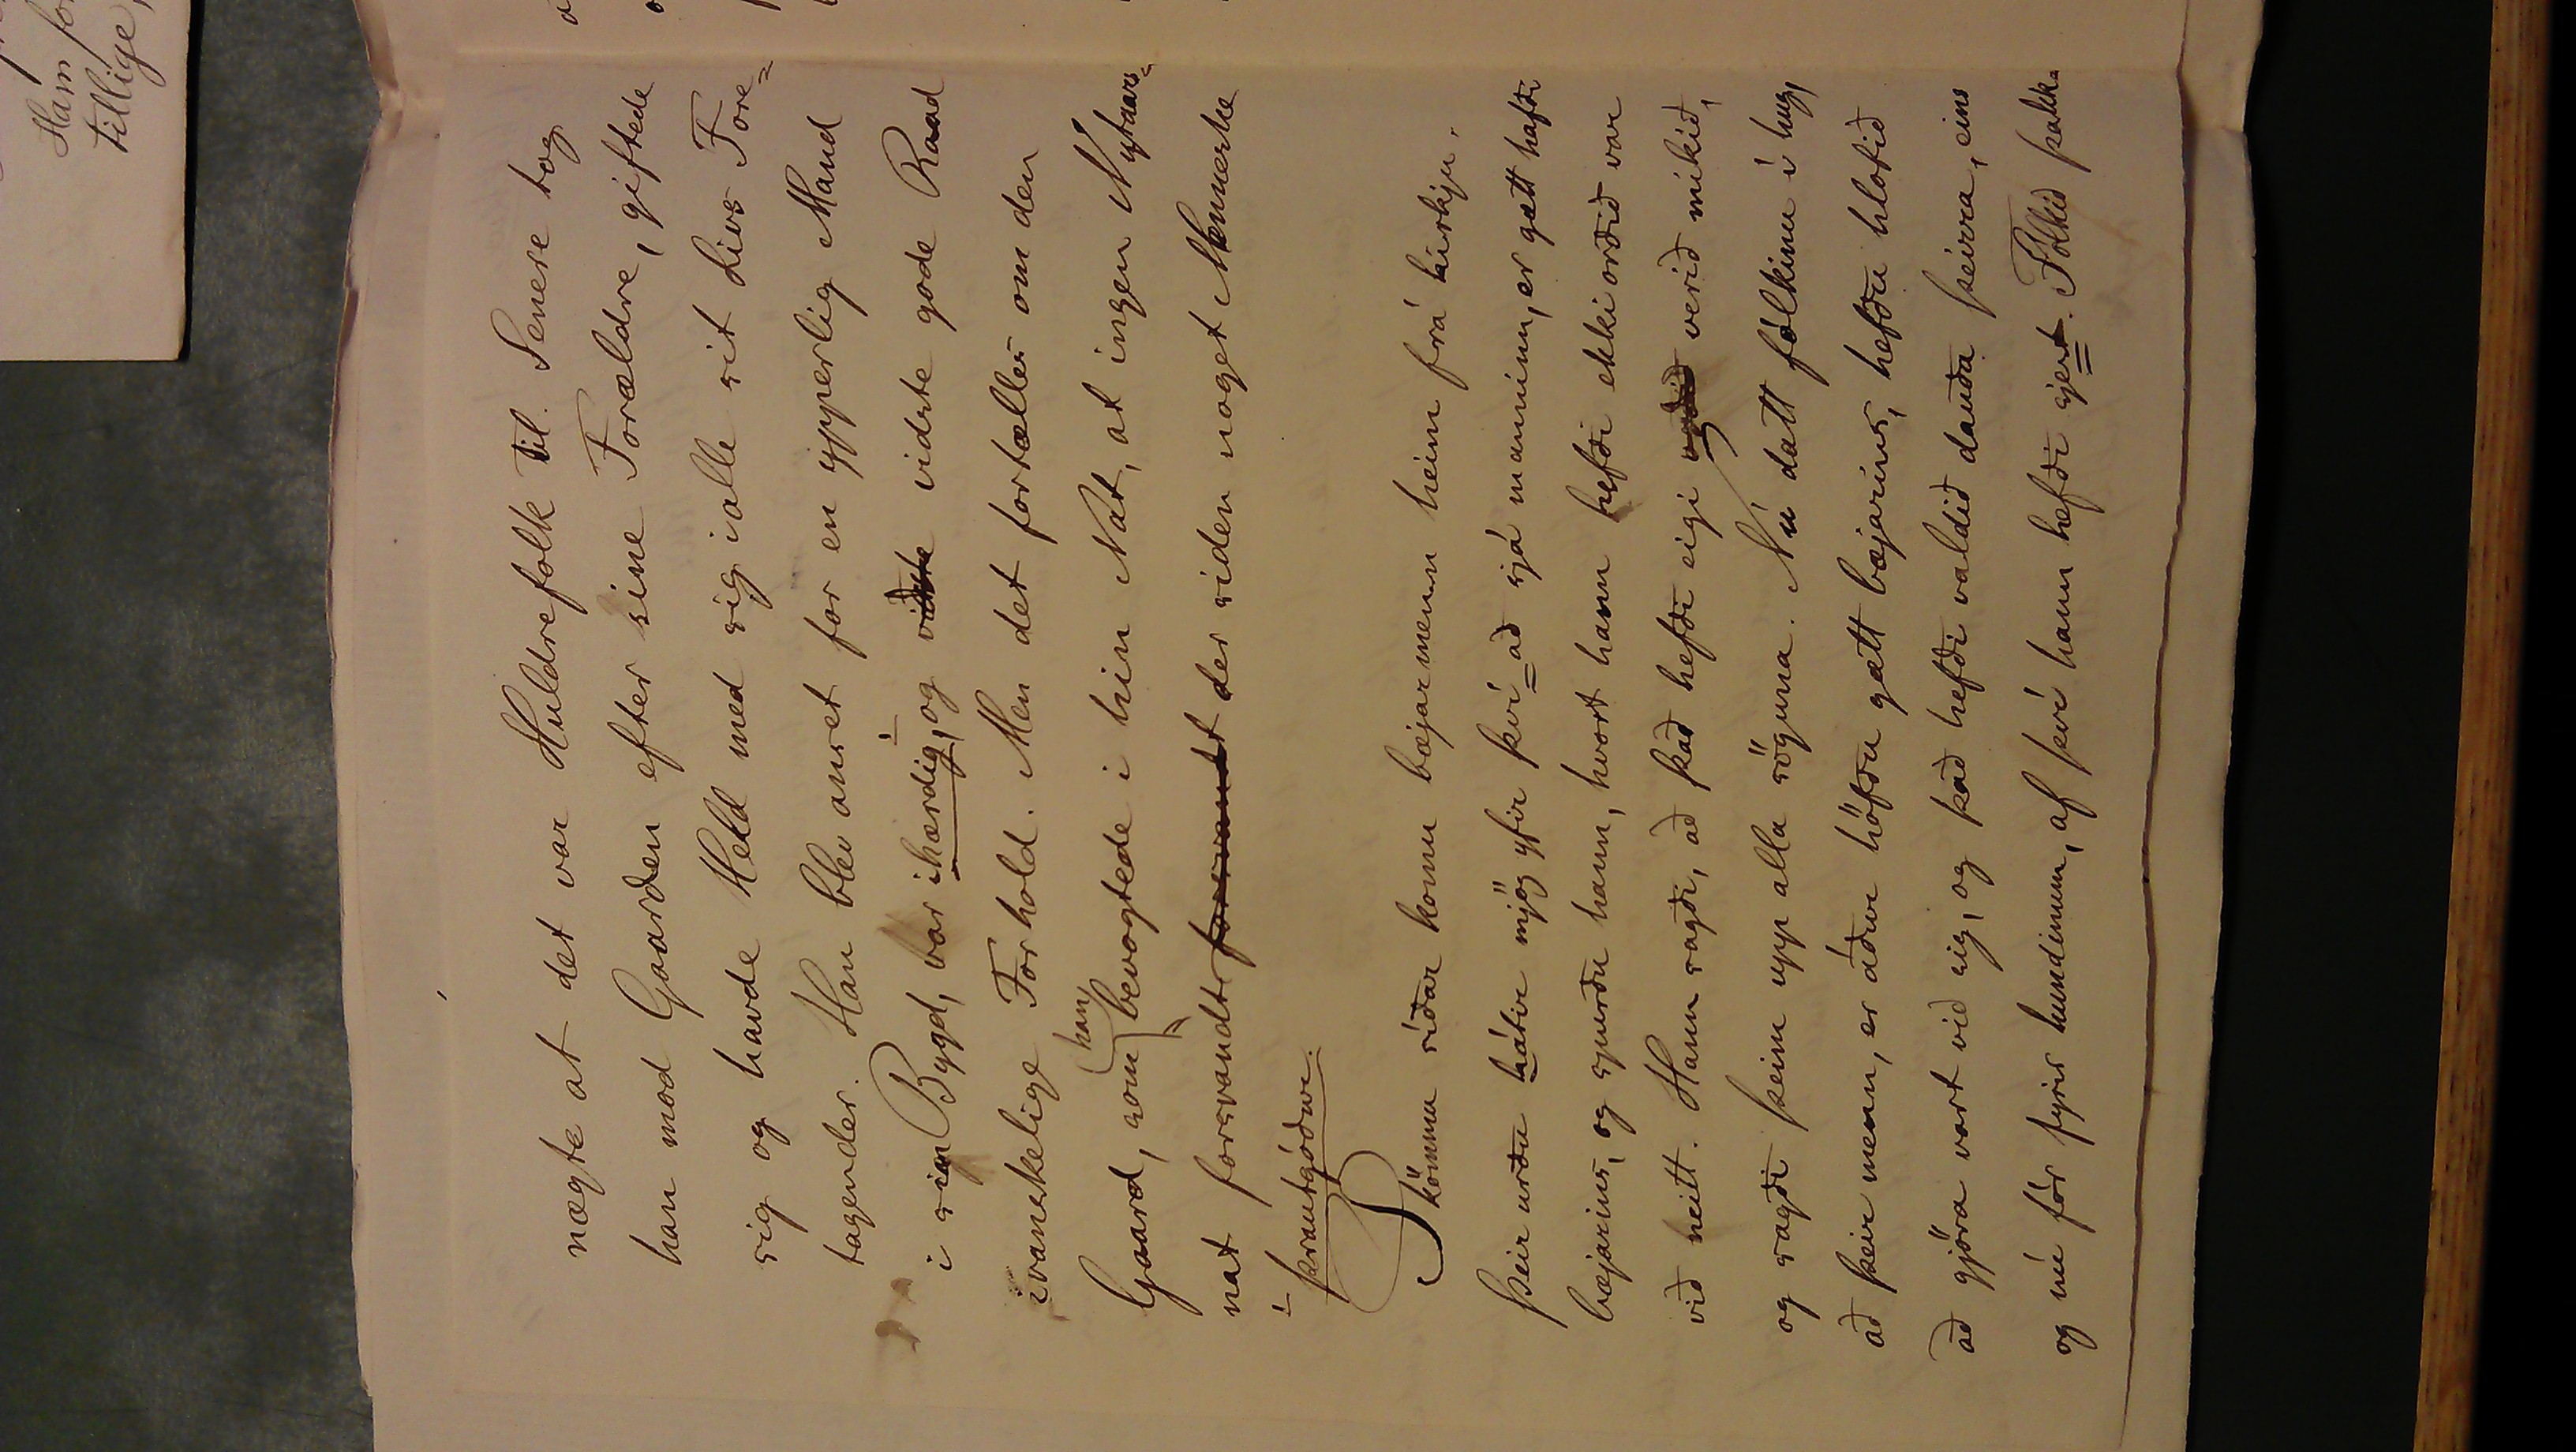 Ham for
tillige,
nægte at det var Huldrefolk til. Senere tog
han mod Gaarden efter sine Forældre, giftede
sig og havde Held med sig i alle sit Livs Fore=
tagender. Han blev anset for en ypperlig Mand
i sin Bygd, var ihærdig, og vidste vidste gode Raad
i vanskelige Forhold. Men det fortælles om den
Gaard, som han bevogtede i hin Nat, at ingen Nytaars=
nat forsvandt forsvandt der siden noget Menneske
þrautgóður.
Skömmu síðar komu bæjarmenn heim frá kirkju.
Þeir urðu kátir mjög yfir því að sjá manninn, er gætt hafði
bæjarins, og spurðu hann, hvort hann hefði ekki orðið var
við neitt. Hann sagði, að það hefði eigi verið mikið,
og sagði þeim upp alla söguna. Nú datt fólkinu í hug,
að þeir menn, er áður höfðu gætt bæjarins, hefðu hlotið
að gjöra vart við sig, og það hefði valdið dauða þeirra, eins
og nú fór fyrir hundinum, af því hann hefði gjert. Fólkið þakka